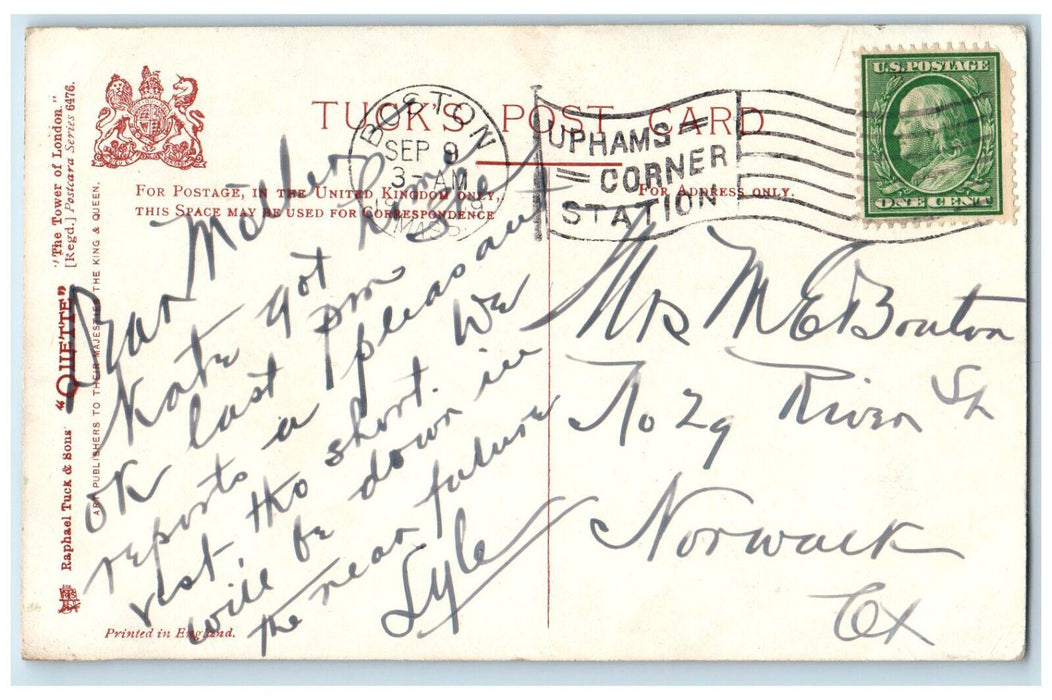 TUCK'S POST CARD
FOR POSTAGE, IN THE UNITED KINGDOM ONLY,
THIS SPACE MAY BE USED FOR CORRESPONDENCE
FOR ADDRESS ONLY.
BOSTON
SEP 9
3-AM
MASS.
UPHAMS
CORNER
STATION
U.S. POSTAGE
ONE CENT
"The Tower of London."
[Regd.] Postcard Series 6476.
Raphael Tuck & Sons' "OILETTE"
ART PUBLISHERS TO THEIR MAJESTIES THE KING & QUEEN.
Printed in England.
Dear Mother
Kate got home
OK last pm
reports a pleasant
vist, tho short. We
will be down in
the near future
Lyle
Mrs M E Bouton
No 29 River St
Norwalk
Ct